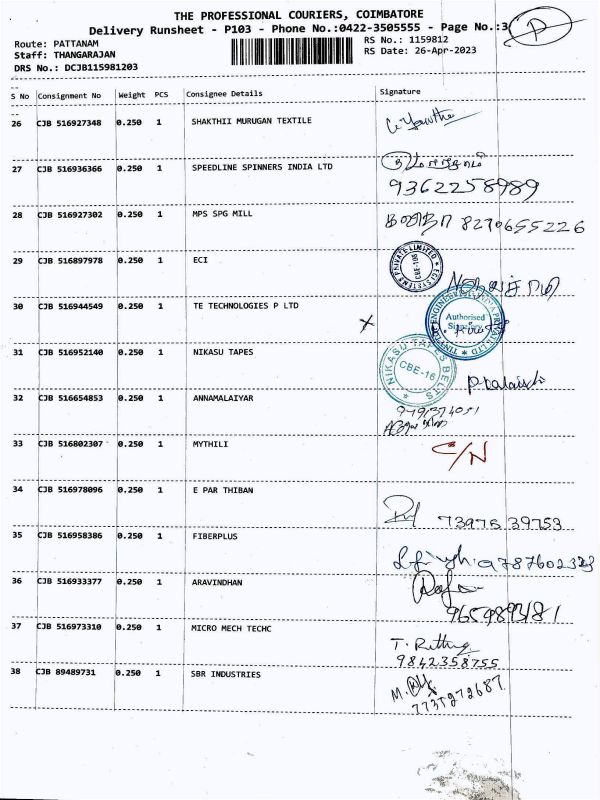 THE PROFESSIONAL COURIERS, COIMBATORE
Delivery Runsheet - P103 - Phone No.:0422-3505555 - Page No.:3
P
Route: PATTANAM
RS No.: 1159812
Staff: THANGARAJAN
RS Date: 26-Apr-2023
DRS No.: DCJB115981203
S No Consignment No Weight PCS Consignee Details Signature
26 CJB 516927348 0.250 1 SHAKTHII MURUGAN TEXTILE
27 CJB 516936366 0.250 1 SPEEDLINE SPINNERS INDIA LTD
9362258989
28 CJB 516927302 0.250 1 MPS SPG MILL
8270655226
29 CJB 516897978 0.250 1 ECI
ECI SYSTEMS PRIVATE LIMITED
30 CJB 516944549 0.250 1 TE TECHNOLOGIES P LTD
Authorised
31 CJB 516952140 0.250 1 NIKASU TAPES
NIKASU TAPES BELTS
CBE-16
32 CJB 516654853 0.250 1 ANNAMALAIYAR
33 CJB 516802307 0.250 1 MYTHILI
C/N
34 CJB 516978096 0.250 1 E PAR THIBAN
73975 39753
35 CJB 516958386 0.250 1 FIBERPLUS
36 CJB 516933377 0.250 1 ARAVINDHAN
37 CJB 516973310 0.250 1 MICRO MECH TECHC
9842358755
38 CJB 89489731 0.250 1 SBR INDUSTRIES